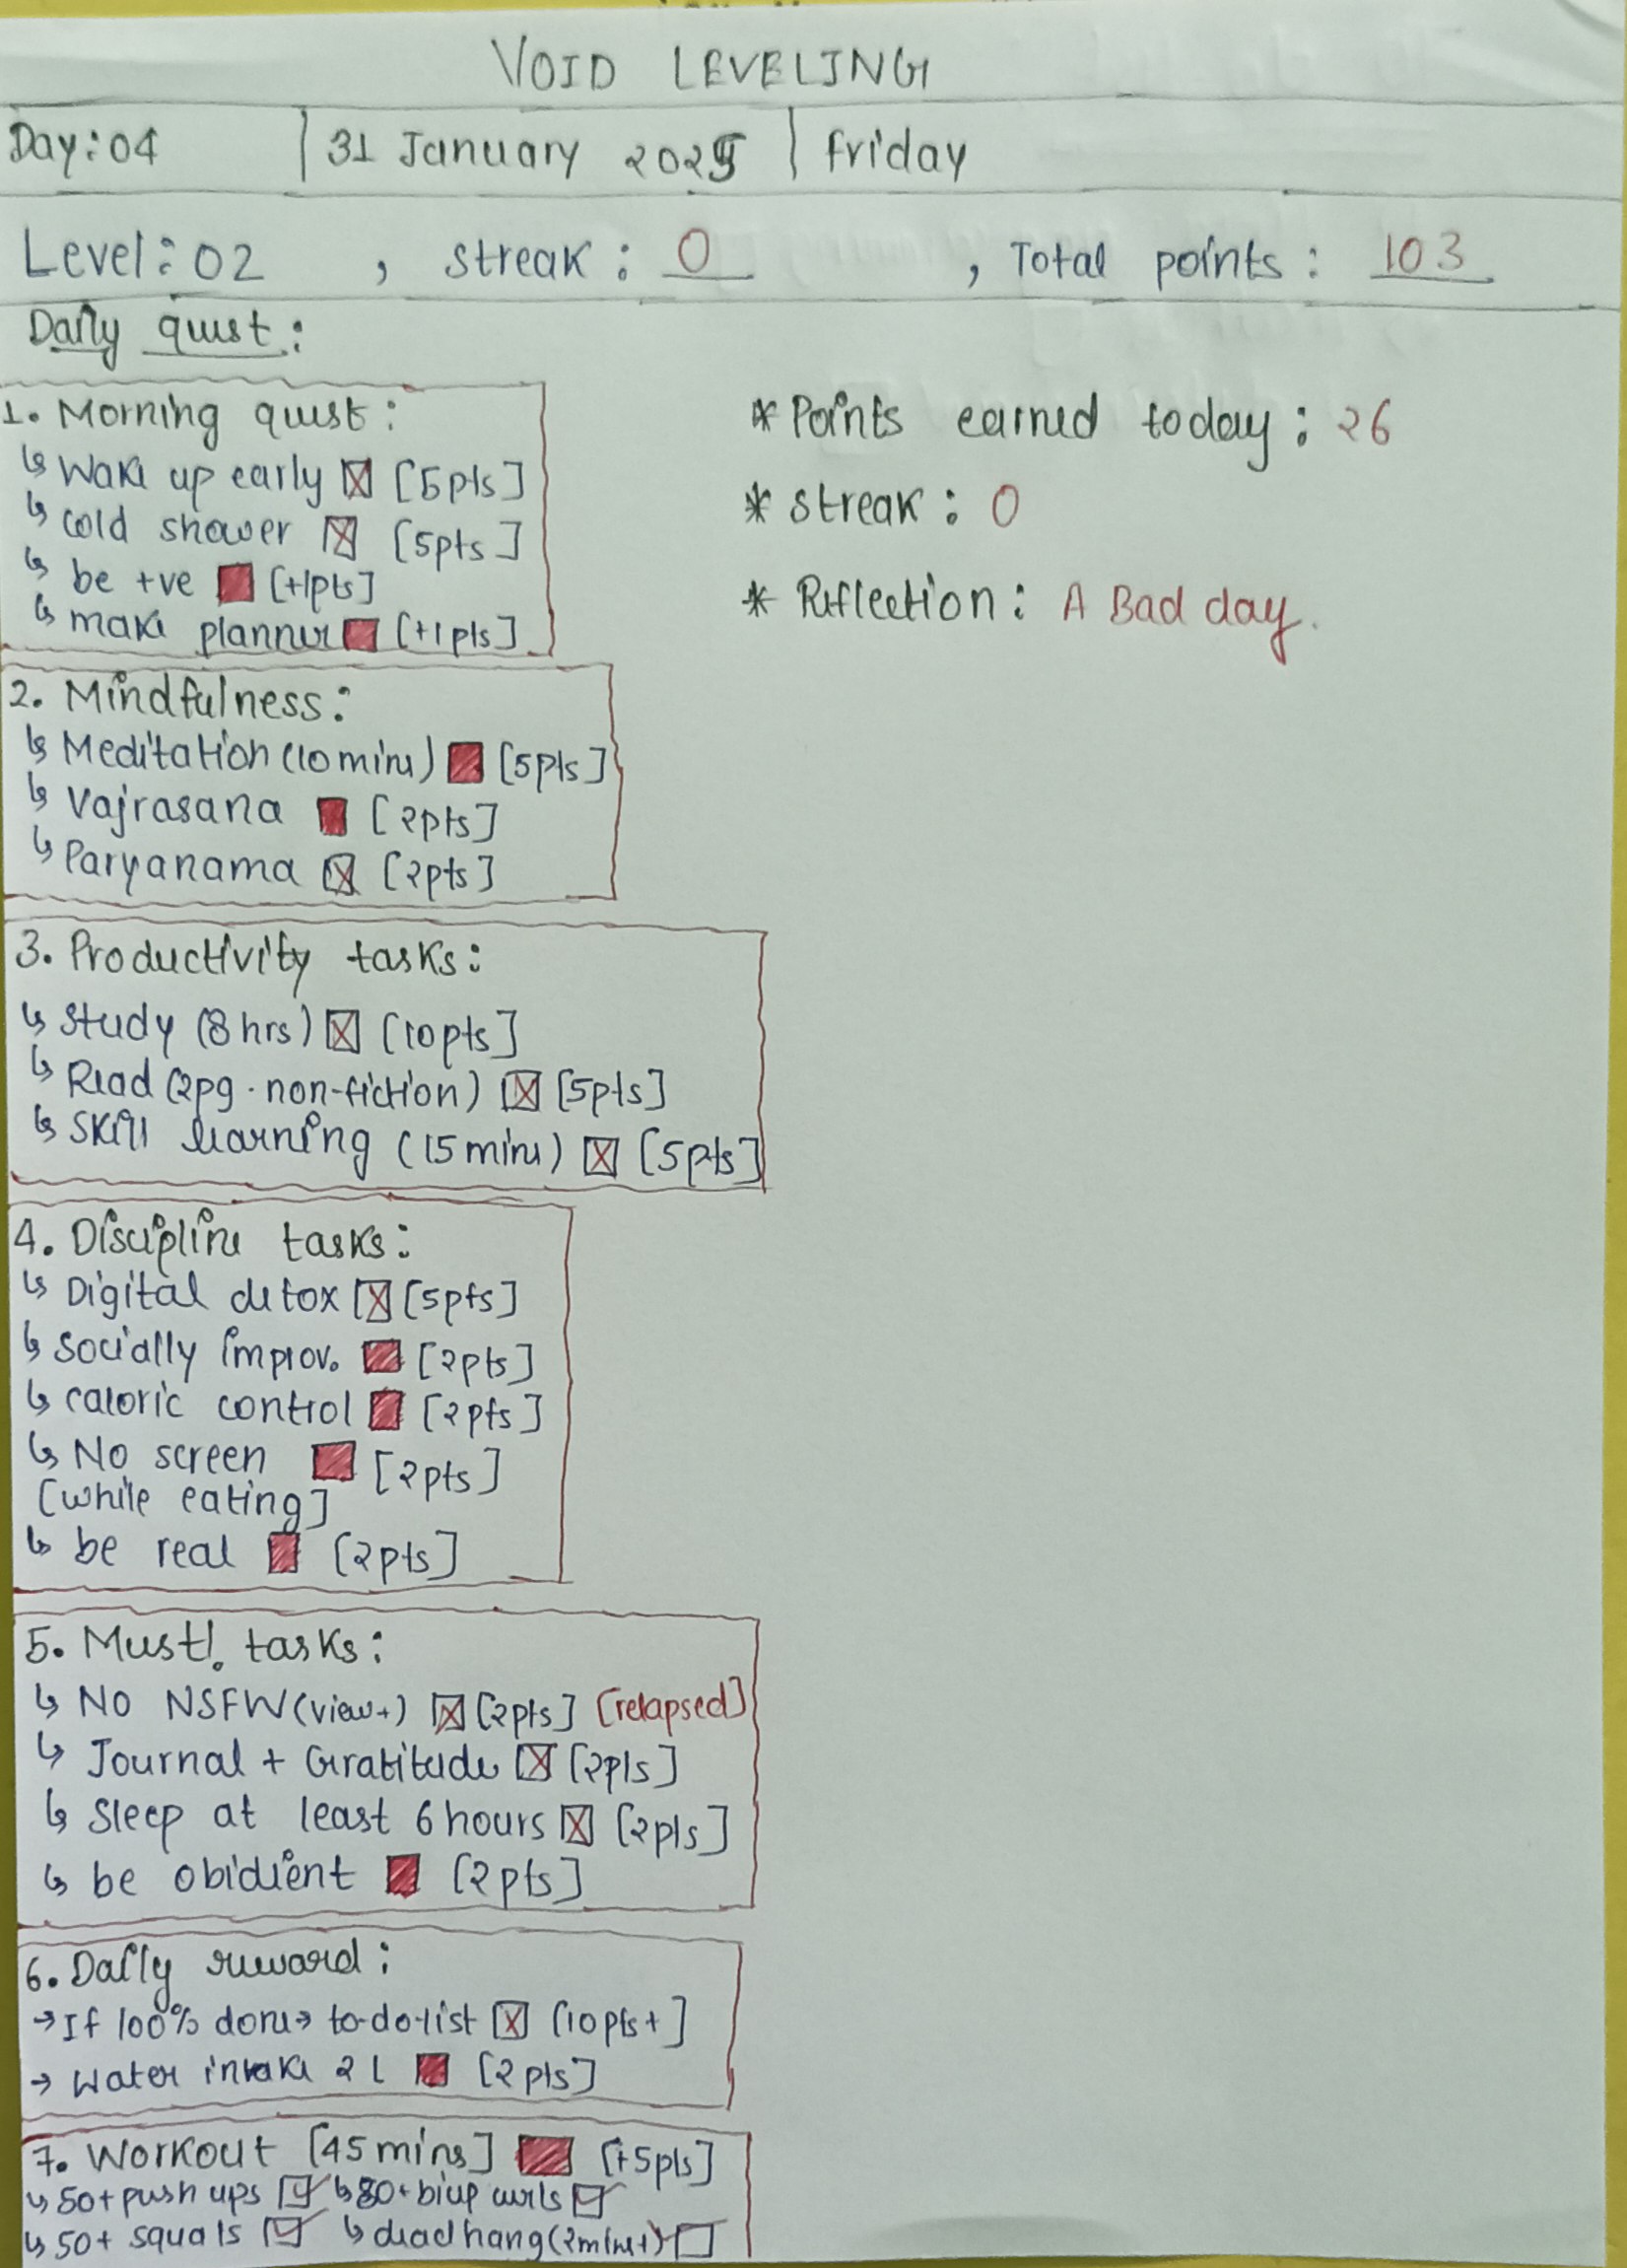 VOID LEVELING
Day: 04 | 31 January 2025 | Friday
Level: 02 , streak: 0 , Total points: 103
Daily quest:
1. Morning quest:
↳ Wake up early ☒ [5pts]
↳ cold shower ☒ [5pts]
↳ be +ve ■ [+1pts]
↳ make planner ■ [+1pts]
* Points earned today: 26
* streak: 0
* Reflection: A Bad day.
2. Mindfulness:
↳ Meditation (10 mins) ■ [5pts]
↳ Vajrasana ■ [2pts]
↳ Paryanama ☒ [2pts]
3. Productivity tasks:
↳ study (8 hrs) ☒ [10pts]
↳ Read (2pg. non-fiction) ☒ [5pts]
↳ Skill learning (15 mins) ☒ [5pts]
4. Discipline tasks:
↳ Digital detox ☒ [5pts]
↳ socially improv. ■ [2pts]
↳ caloric control ■ [2pts]
↳ No screen ■ [2pts]
[while eating]
↳ be real ■ [2pts]
5. Must! tasks:
↳ NO NSFW (view+) ☒ [2pts] [relapsed]
↳ Journal + Gratitude ☒ [2pts]
↳ Sleep at least 6 hours ☒ [2pts]
↳ be obidient ■ [2pts]
6. Daily reward:
→ If 100% done → to-do-list ☒ [10pts+]
→ Water intake 2 L ■ [2pts]
7. Workout [45 mins] ■ [+5pts]
↳ 50+ push ups ☑ ↳ 80+ bicep curls ☑
↳ 50+ squats ☑ ↳ dead hang (2mins+) ☐